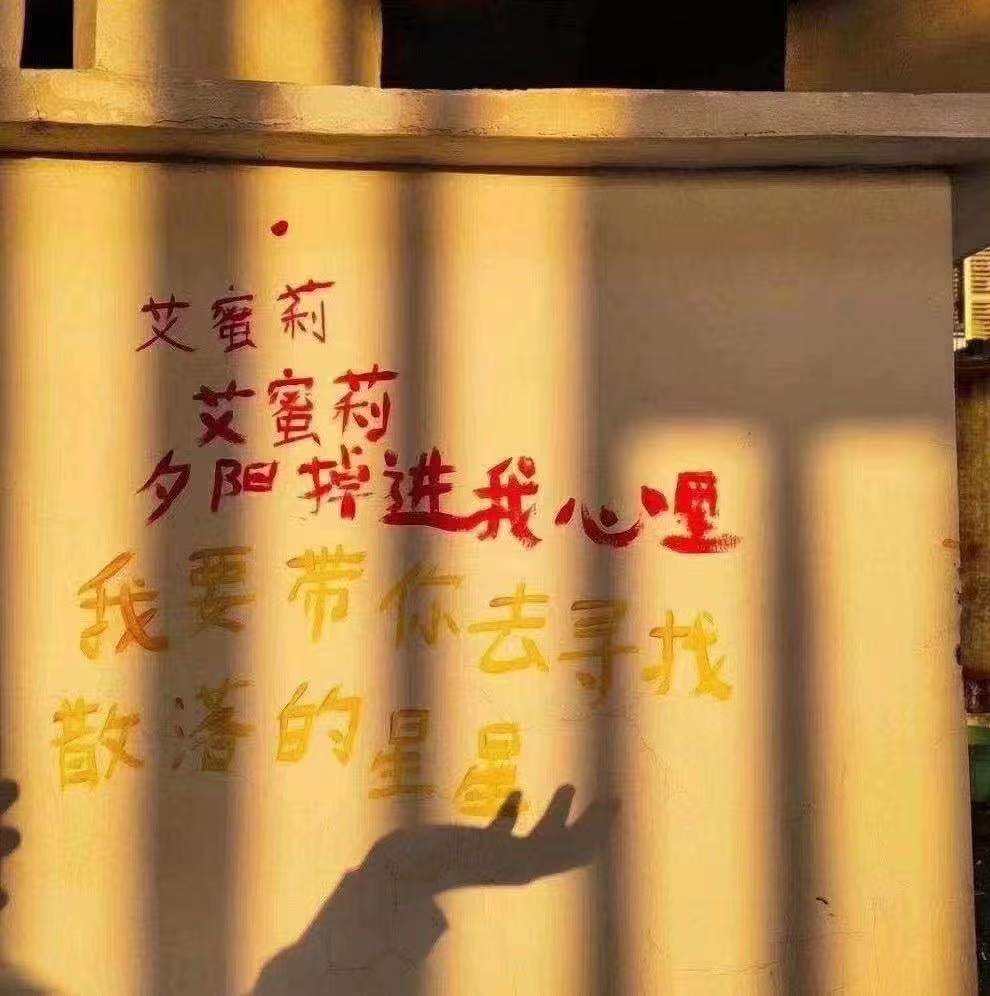 艾蜜莉
艾蜜莉
夕阳掉进我心哩
我要带你去寻找
散落的星星